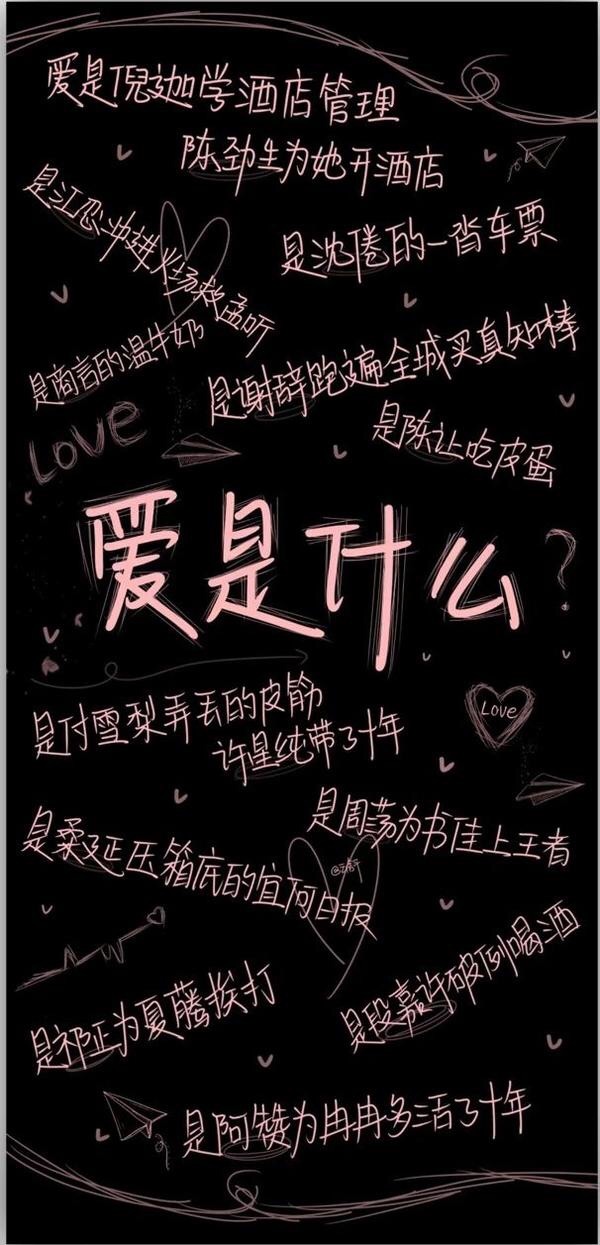 爱是倪迦学酒店管理
陈劲生为她开酒店
是江忍冲进火场救孟听
是沈倦的一沓车票
是商言的温牛奶
是谢辞跑遍全城买真知棒
Love
是陈让吃皮蛋
爱是什么?
是付雪梨弄丢的皮筋
许星纯带了十年
Love
是周荡为书佳上王者
是柔延压箱底的宜阿日报
是祁正为夏藤挨打
是段嘉许破例喝酒
是阿赞为冉冉多活了十年